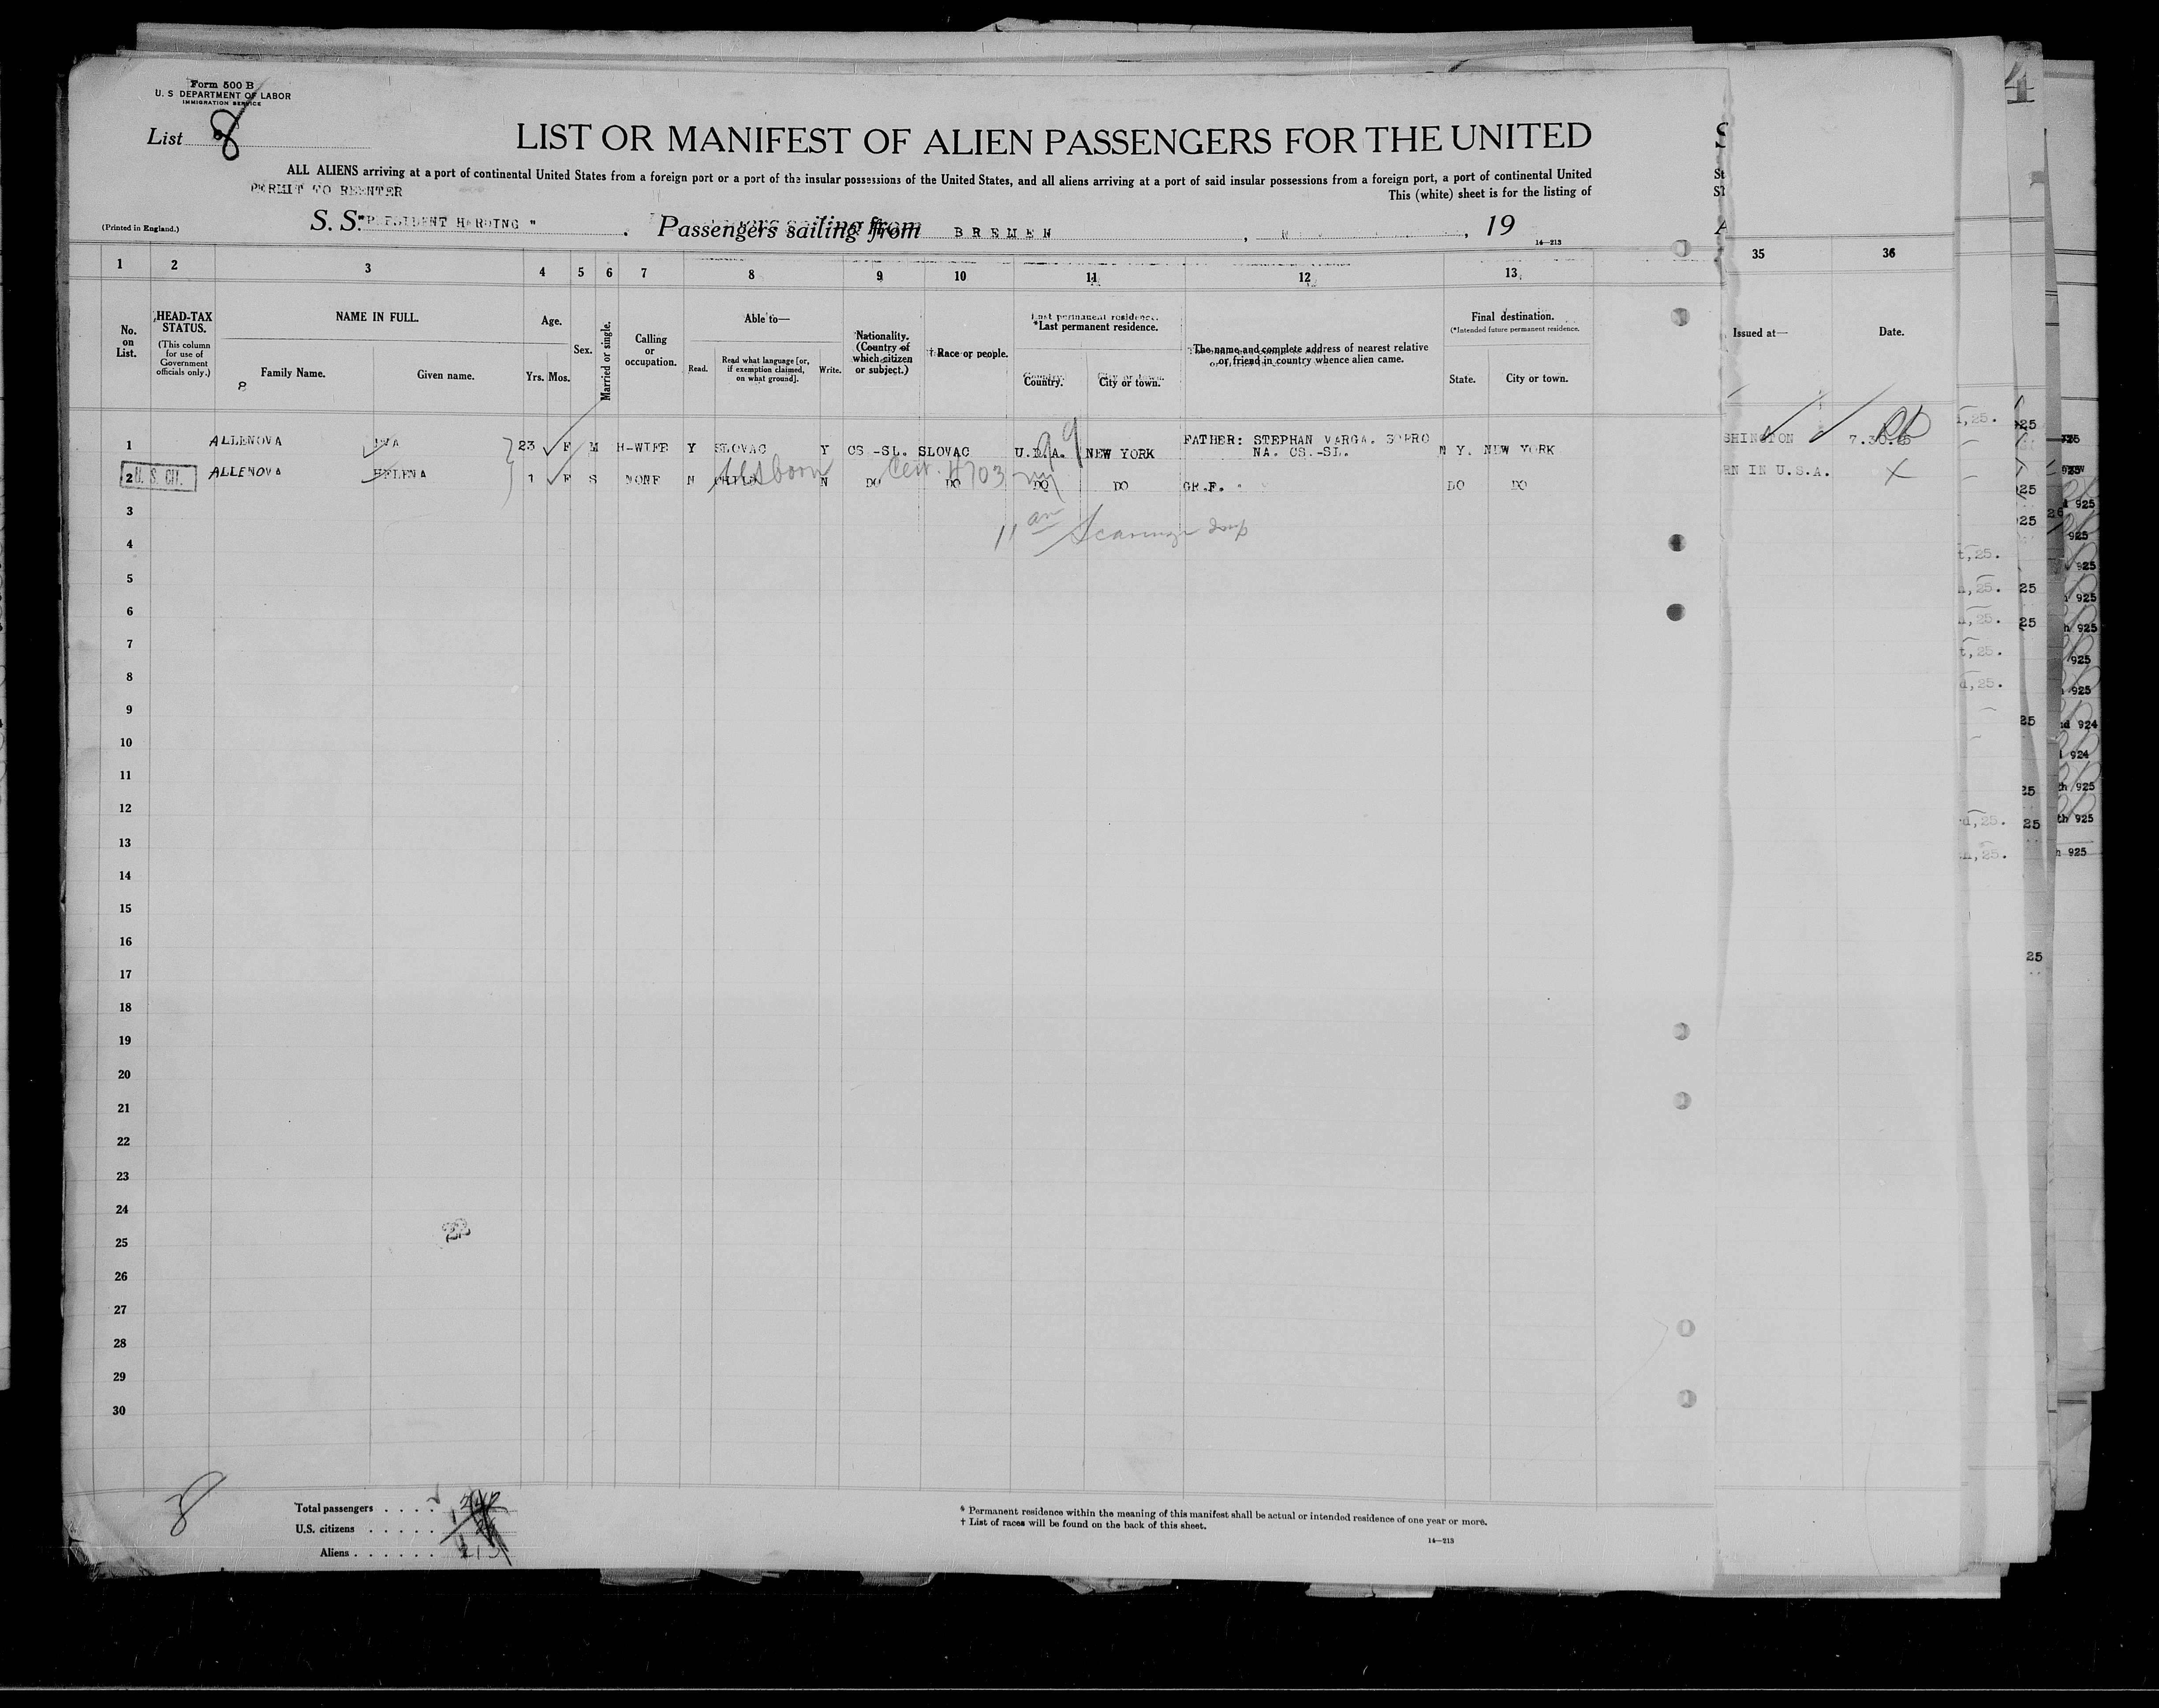 Form 500 B
U. S. DEPARTMENT OF LABOR
IMMIGRATION SERVICE
List 8
LIST OR MANIFEST OF ALIEN PASSENGERS FOR THE UNITED
ALL ALIENS arriving at a port of continental United States from a foreign port or a port of the insular possessions of the United States, and all aliens arriving at a port of said insular possessions from a foreign port, a port of continental United
PERMIT TO REENTER
This (white) sheet is for the listing of
(Printed in England.)
S. S. "PRESIDENT HARDING" . Passengers sailing from BREMEN , , 19
14—213
1 2 3 4 5 6 7 8 9 10 11 12 13 35 36
No. on List.
HEAD-TAX STATUS.
(This column for use of Government officials only.)
NAME IN FULL.
Family Name. Given name.
Age.
Yrs. Mos.
Sex.
Married or single.
Calling or occupation.
Able to—
Read. Read what language [or, if exemption claimed, on what ground]. Write.
Nationality. (Country of which citizen or subject.)
† Race or people.
*Last permanent residence.
Country. City or town.
The name and complete address of nearest relative or friend in country whence alien came.
Final destination.
(*Intended future permanent residence.
State. City or town.
Issued at— Date.
1 ALLENOVA EVA 23 F M H-WIFE Y SLOVAC Y CS-SL. SLOVAC U.S.A. NEW YORK FATHER: STEPHAN VARGA. NA. CS.-SL. N Y. NEW YORK SHINGTON
2 U. S. CIT. ALLENOVA HELENA 1 F S NONE N CHILD N DO DO DO DO GR.F. DO DO RN IN U.S.A.
3
4
5
6
7
8
9
10
11
12
13
14
15
16
17
18
19
20
21
22
23
24
25
26
27
28
29
30
Total passengers . . . .
U.S. citizens . . . . .
Aliens . . . . . .
* Permanent residence within the meaning of this manifest shall be actual or intended residence of one year or more.
† List of races will be found on the back of this sheet.
14—213